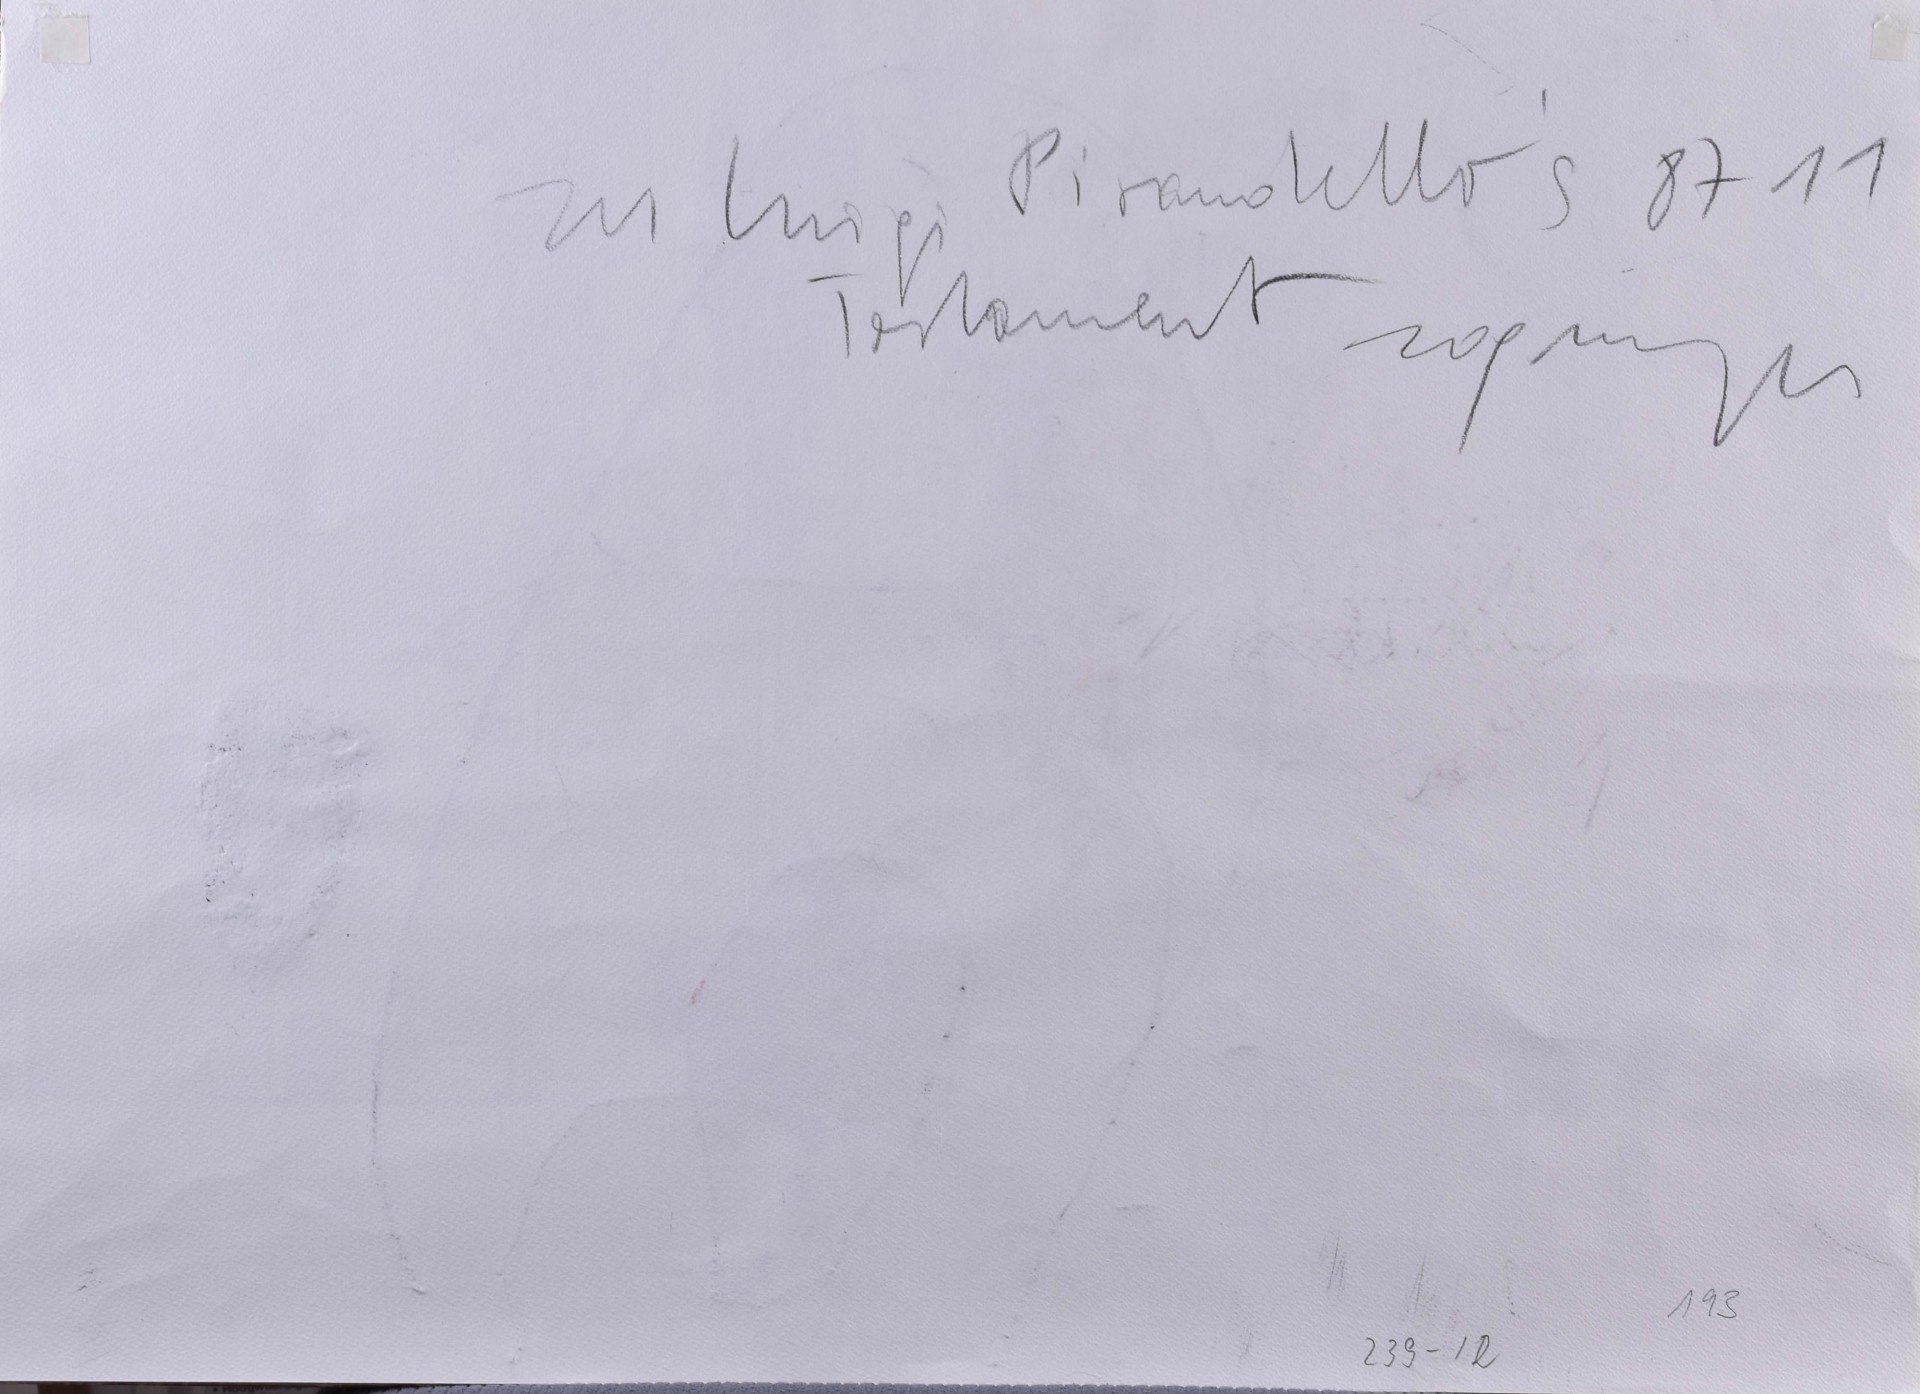 zu Luigi Pirandello's 87-11
Testament
193
239-12